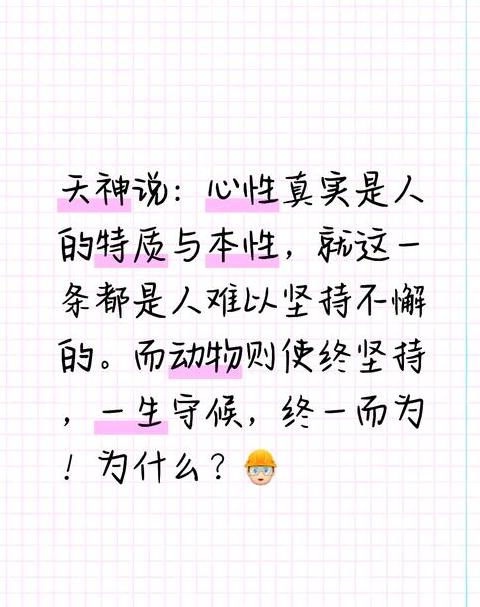 天神说：心性真实是人
的特质与本性，就这一
条都是人难以坚持不懈
的。而动物则使终坚持
，一生守候，终一而为
！为什么？